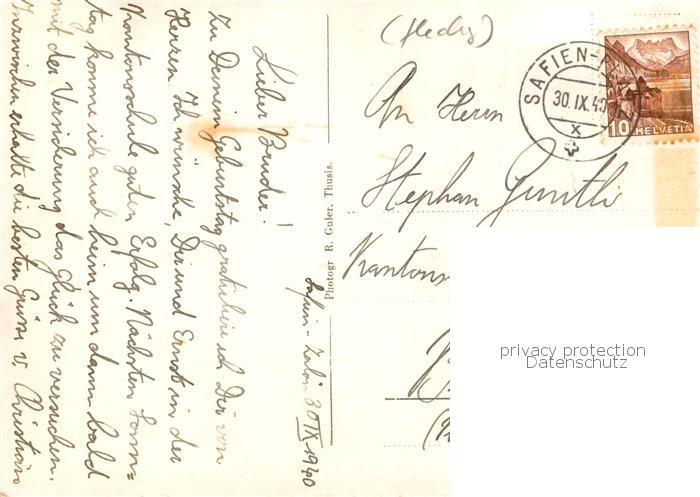 Safien-Zalön 30 IX 1940
Lieber Bruder!
Zu Deinem Geburtstag gratuliere ich Dir von
Herzen. Ich wünsche, Dir und Ernst in der
Kantonsschule guten Erfolg. Nächsten Sonn=
tag komme ich auch heim um dann bald
mit der Versicherung das Glück zu versuchen.
Inzwischen erhalte die besten Grüsse v. Christian
Photogr R. Guler, Thusis.
An Herrn
Stephan
Kantons
SAFIEN-
30.IX.40
X
10 HELVETIA
privacy protection
Datenschutz